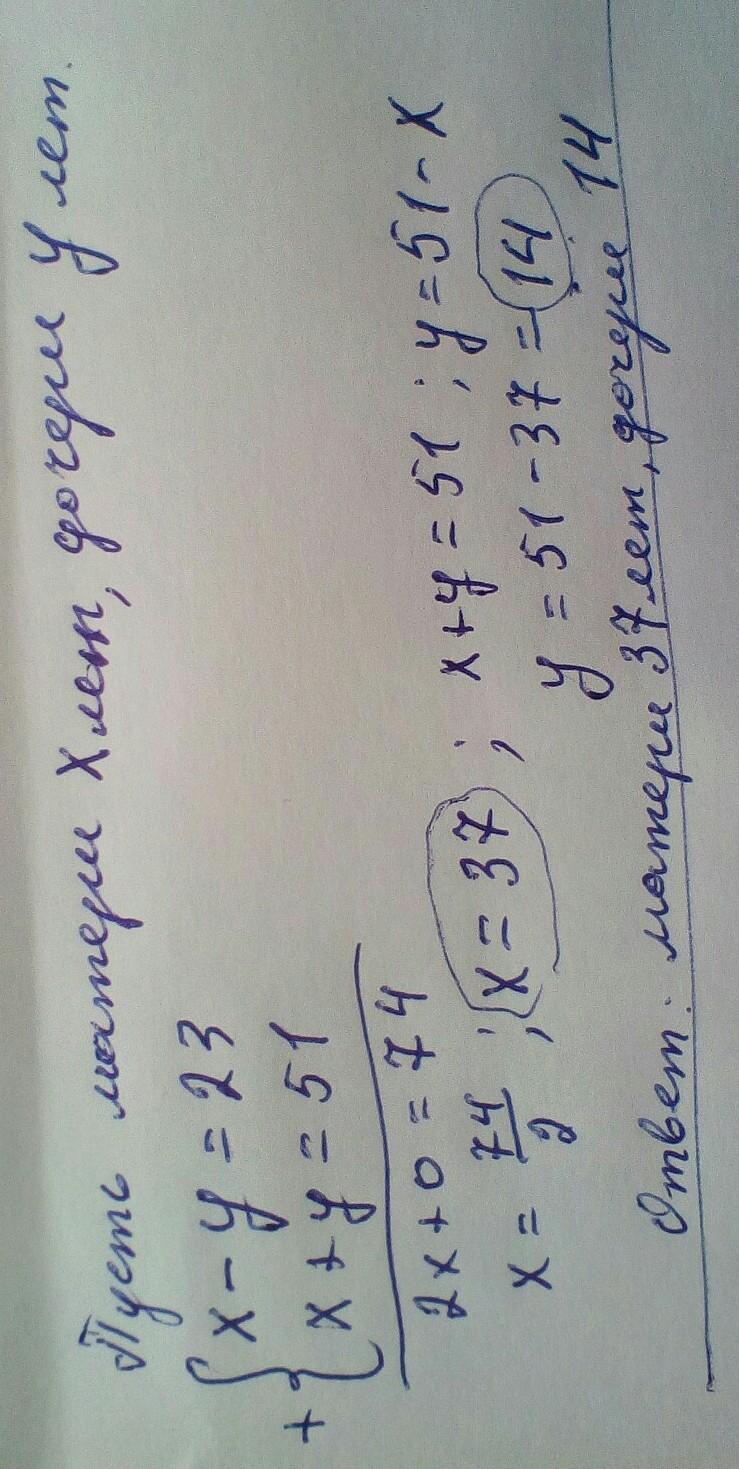 Пусть матери x лет, дочери y лет.
+ { x - y = 23
x + y = 51
2x + 0 = 74
x = 74/2 ; x = 37 ; x + y = 51 ; y = 51 - x
y = 51 - 37 = 14
Ответ: матери 37 лет, дочери 14